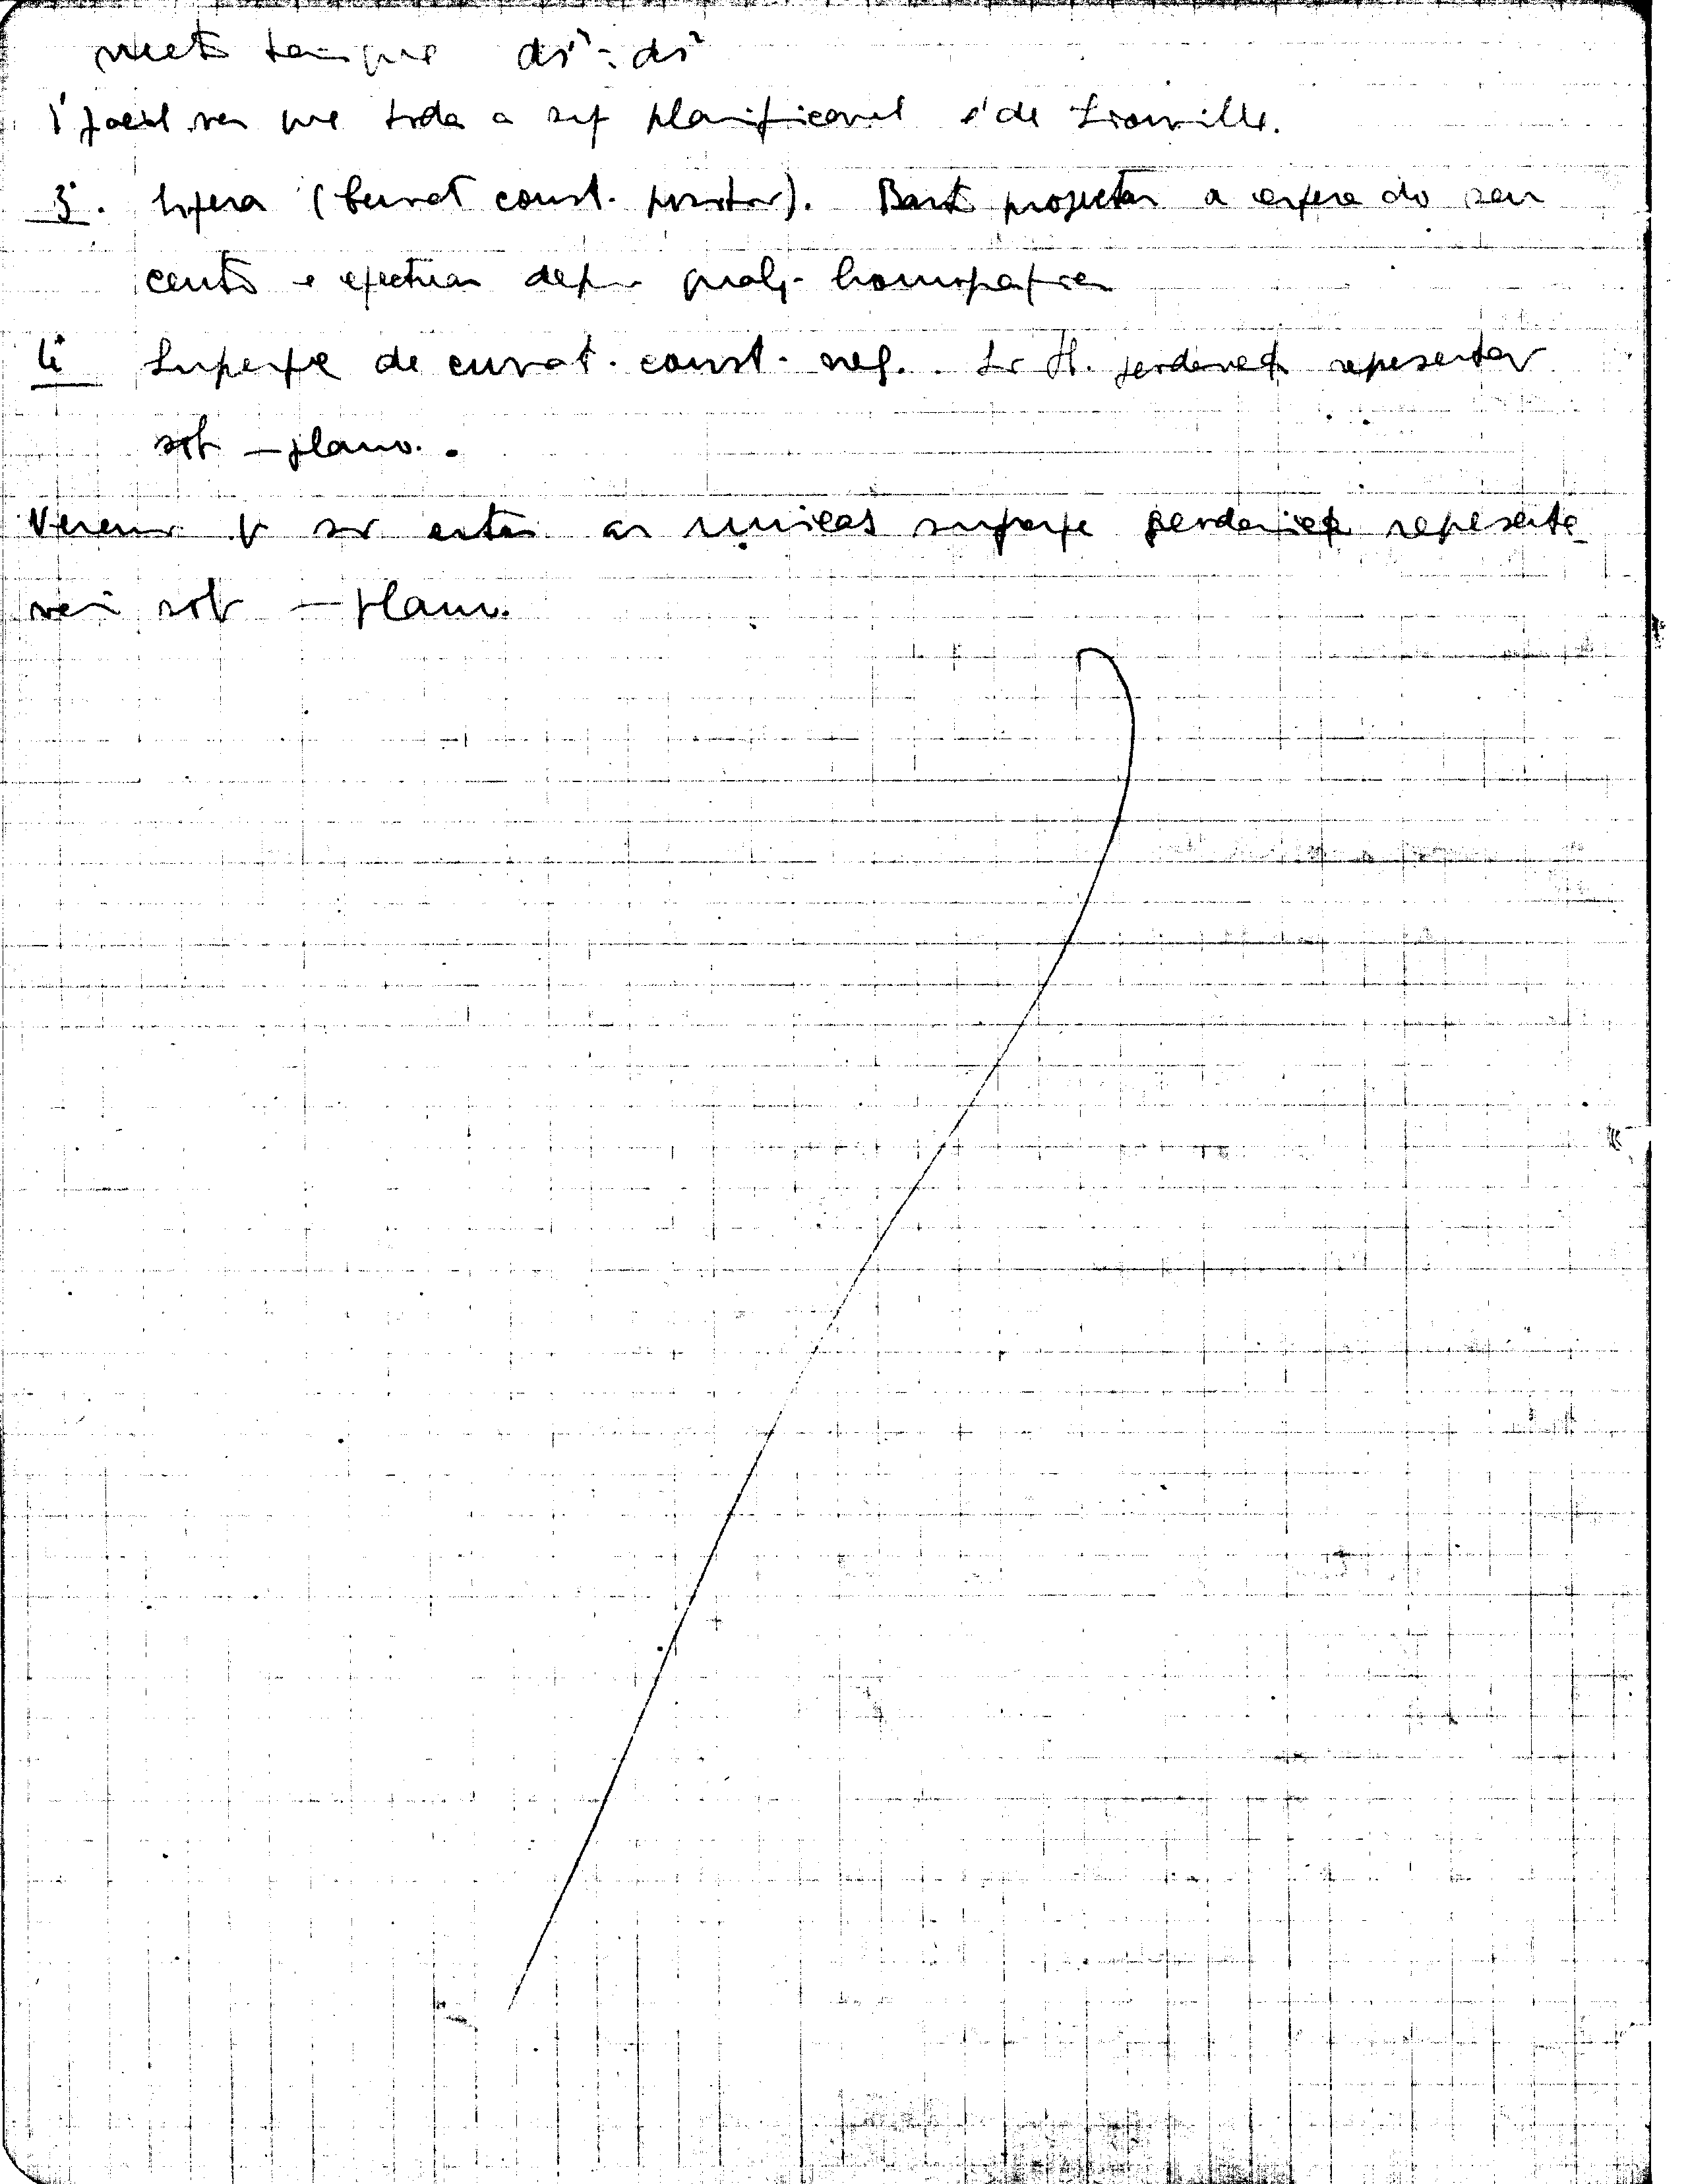 ds² = ds²
fácil ver que toda a sup planificavel é de Liouville.
3º. Esfera (curvat const. positiva). Basta projectar a esfera do seu
centro e efectuar depois qualq. homografia
4º Superfe de curvat. const. neg. . representar
sob plano.
Veremos q são estas as unicas superfe representa
veis sob plano.